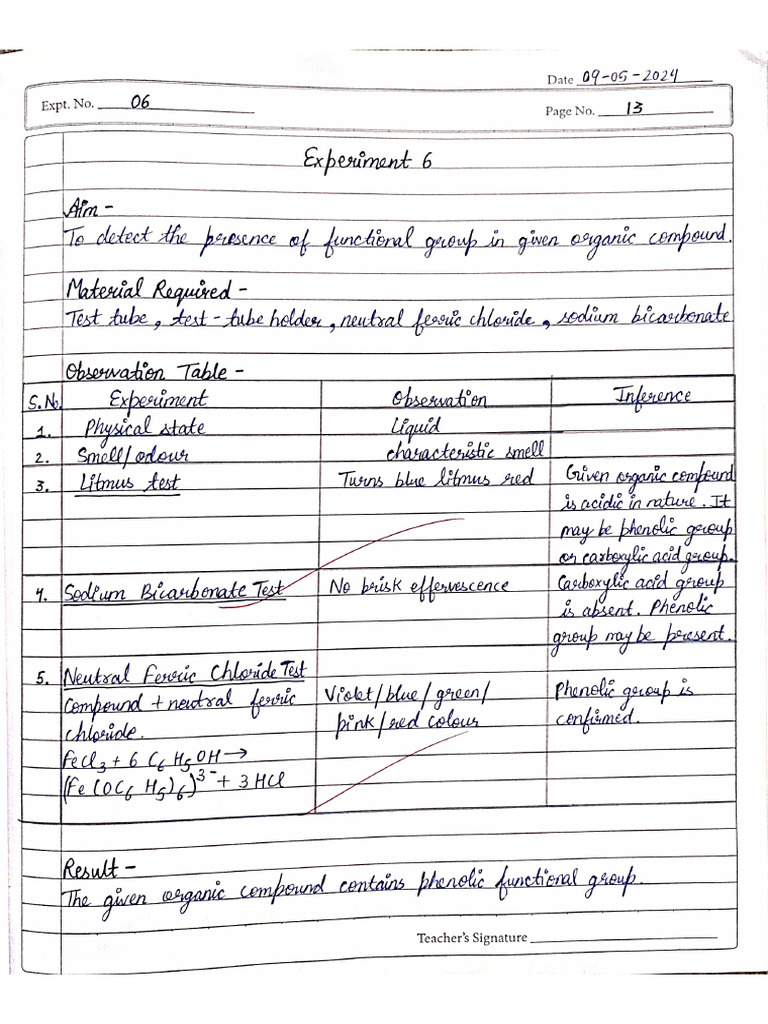 Date 09-05-2024
Expt. No. 06
Page No. 13
Experiment 6
Aim -
To detect the presence of functional group in given organic compound.
Material Required -
Test tube, test-tube holder, neutral ferric chloride, sodium bicarbonate
Observation Table -
S.No. Experiment Observation Inference
1. Physical state Liquid
2. Smell/odour characteristic smell
3. Litmus test Turns blue litmus red Given organic compound
is acidic in nature. It
may be phenolic group
or carboxylic acid group.
4. Sodium Bicarbonate Test No brisk effervescence Carboxylic acid group
is absent. Phenolic
group may be present.
5. Neutral Ferric Chloride Test
Compound + neutral ferric Violet/blue/green/ Phenolic group is
chloride. pink/red colour confirmed.
FeCl₃ + 6 C₆H₅OH →
(Fe(OC₆H₅)₆)³⁻ + 3HCl
Result -
The given organic compound contains phenolic functional group.
Teacher's Signature